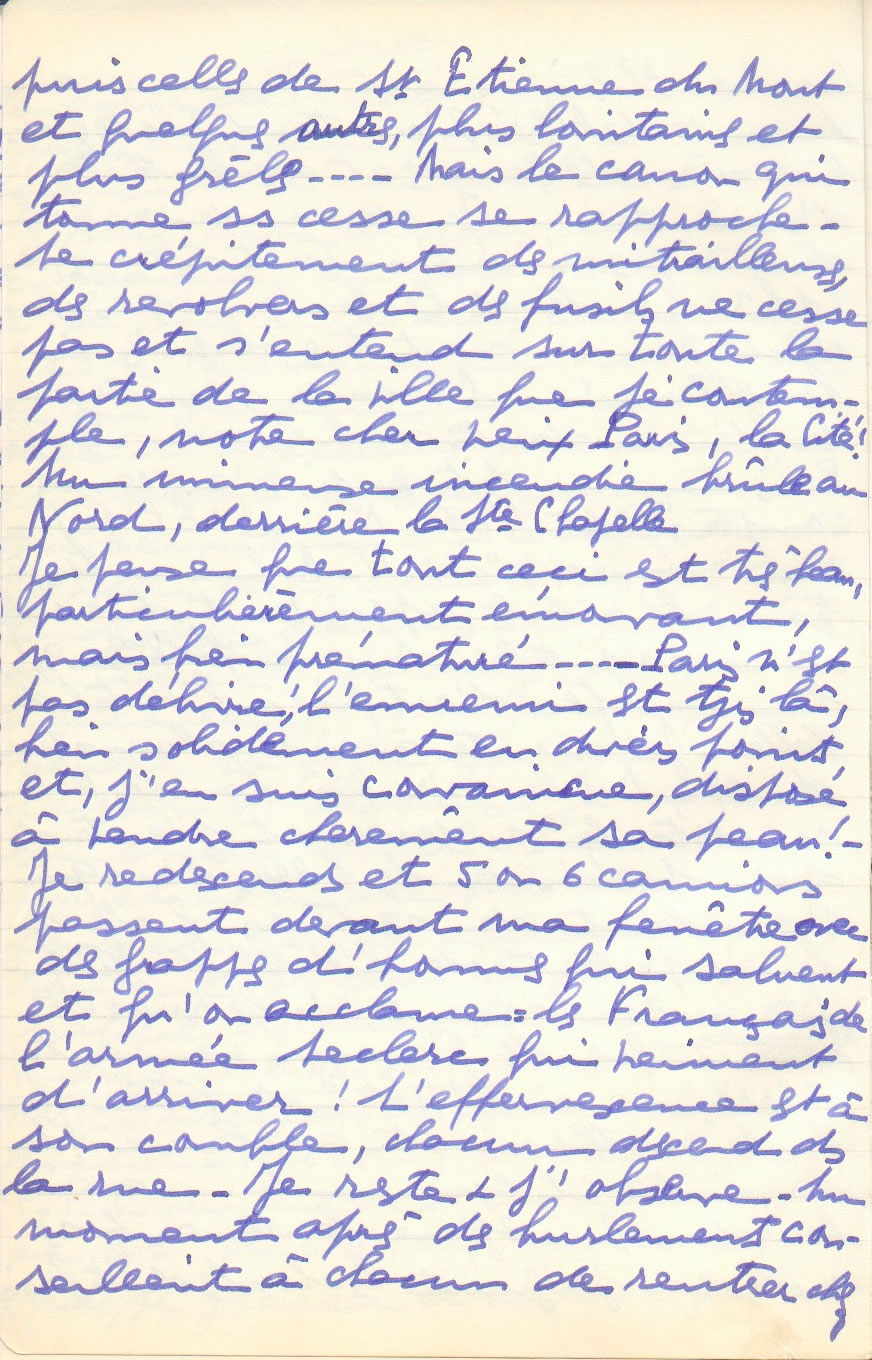 puis celles de St Etienne du Mont
et quelques autres, plus lointains et
plus grêles---- Mais le canon qui
tonne ss cesse se rapproche -
Le crépitement des mitrailleuses,
des revolvers et des fusils ne cesse
pas et s'entend sur toute la
partie de la ville que je contem-
ple, notre cher vieux Paris, la Cité!
Un immense incendie brûle au
Nord, derrière la Ste Chapelle
Je pense que tout ceci est très beau,
particulièrement émouvant,
mais bien prématuré---- Paris n'est
pas délivré, l'ennemi est tjs là,
bien solidement en divers points,
et, j'en suis convaincue, disposé
à vendre chèrement sa peau! -
Je redescends et 5 ou 6 camions
passent devant ma fenêtre avec
des grappes d'hommes qui saluent
et qu'on acclame = les Français de
l'armée Leclerc qui viennent
d'arriver ! L'effervescence est à
son comble, chacun descend ds
la rue - Je reste & j'observe - Un
moment après des hurlements con-
seillent à chacun de rentrer chez